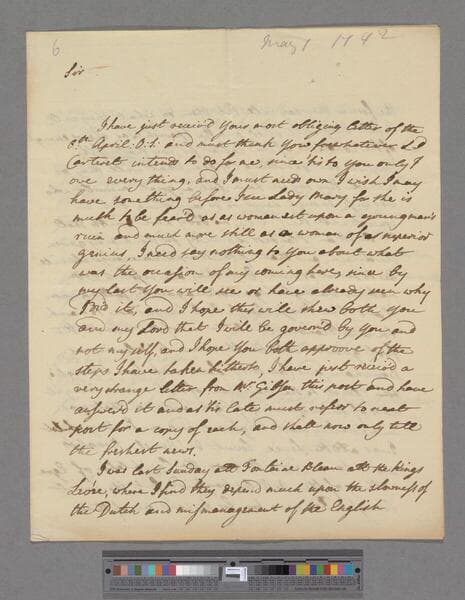 6
May 1 1742
Sir
I have just receivd your most obliging letter of the
6th April: O.S: and must thank you for whatever Ld
Carteret intends to do for me, since 'tis to you only I
owe every thing, and I must needs own I wish I may
have something before I see Lady Mary for she is
much to be feard as a woman set upon a young man's
ruin and much more still as a woman of a superior
genius, I need say nothing to you about what
was the occasion of my coming here, since by
my last you will see or have already seen why
I did it, and I hope this will shew both you
and my Lord that I will be govern'd by you and
not my self, and I hope you both approove of the
steps I have taken hitherto, I have just receivd a
very strange letter from Mr. Gibson this post and have
answerd it and as tis late must refer to next
post for a copy of each, and shall now only tell
the freshest news.
I was last Sunday att Fontaine Bleau att the Kings
Levée, where I find they depend much upon the slowness of
the Dutch and mismanagement of the English